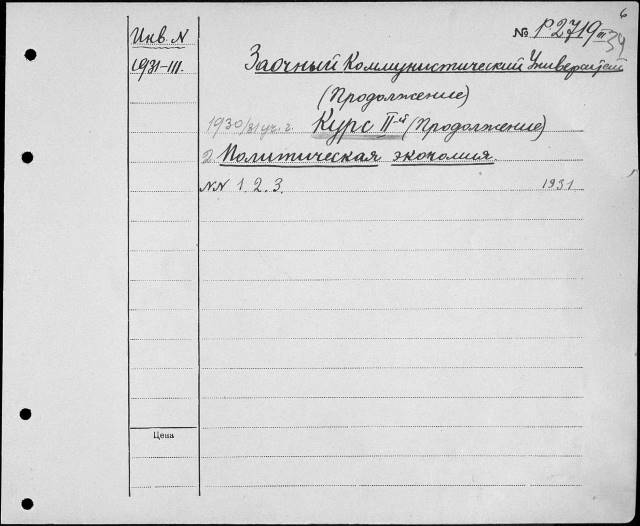 6
Инв. N
№ Р2719 III 34
1931-III.
Заочный Коммунистический Университет
(Продолжение)
1930/31 уч. г. Курс II-й (Продолжение)
2 Политическая экономия.
NN 1. 2. 3. 1931
Цена